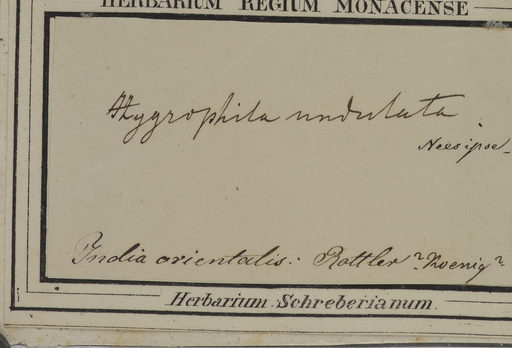 HERBARIUM REGIUM MONACENSE
Hygrophila undulata
Nees ipse
India orientalis: Rottler? Koenig?
Herbarium Schreberianum.